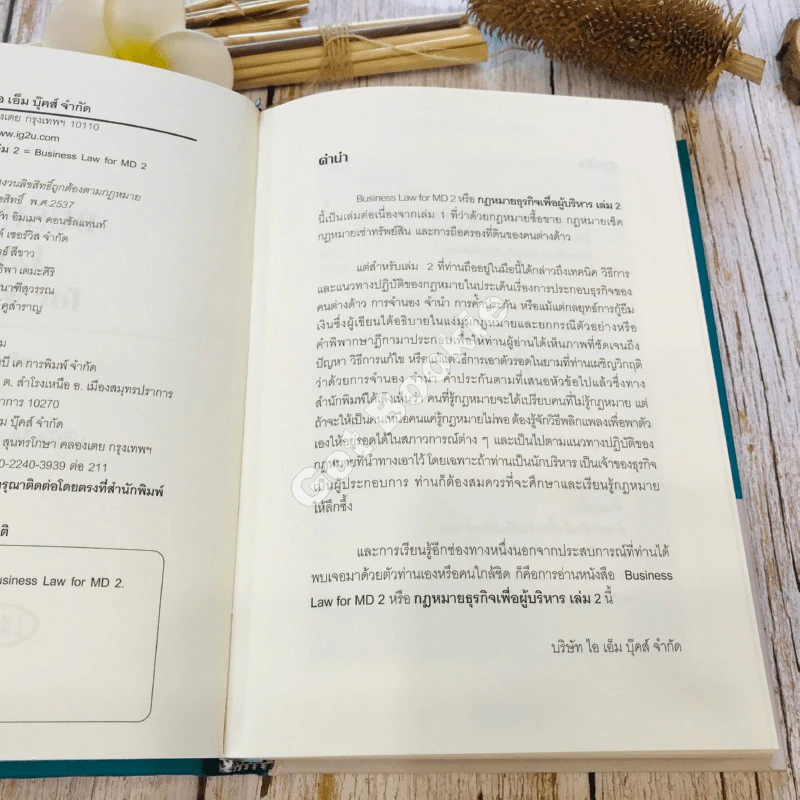 อ เอ็ม บุ๊คส์ จำกัด
องเตย กรุงเทพฯ 10110
ww.ig2u.com
ม 2 = Business Law for MD 2
งวนลิขสิทธิ์ถูกต้องตามกฎหมาย
ขสิทธิ์ พ.ศ.2537
ัท อิมเมจ คอนซัลแทนท์
ด์ เซอร์วิส จำกัด
ธ์ สีขาว
ธิพา เตมะศิริ
นาฑีสุวรรณ
์ คูสำราญ
ม
บี เค การพิมพ์ จำกัด
ต. สำโรงเหนือ อ. เมืองสมุทรปราการ
าการ 10270
อ็ม บุ๊คส์ จำกัด
สุนทรโกษา คลองเตย กรุงเทพฯ
0-2240-3939 ต่อ 211
กรุณาติดต่อโดยตรงที่สำนักพิมพ์
ติ
usiness Law for MD 2.
คำนำ
Business Law for MD 2 หรือ กฎหมายธุรกิจเพื่อผู้บริหาร เล่ม 2
นี้เป็นเล่มต่อเนื่องจากเล่ม 1 ที่ว่าด้วยกฎหมายซื้อขาย กฎหมายเช็ค
กฎหมายเช่าทรัพย์สิน และการถือครองที่ดินของคนต่างด้าว
แต่สำหรับเล่ม 2 ที่ท่านถืออยู่ในมือนี้ได้กล่าวถึงเทคนิค วิธีการ
และแนวทางปฏิบัติของกฎหมายในประเด็นเรื่องการประกอบธุรกิจของ
คนต่างด้าว การจำนอง จำนำ การค้ำประกัน หรือแม้แต่กลยุทธ์การกู้ยืม
เงินซึ่งผู้เขียนได้อธิบายในแง่มุมกฎหมายและยกกรณีตัวอย่างหรือ
คำพิพากษาฎีกามาประกอบเพื่อให้ท่านผู้อ่านได้เห็นภาพที่ชัดเจนถึง
ปัญหา วิธีการแก้ไข หรือแม้แต่วิธีการเอาตัวรอดในยามที่ท่านเผชิญวิกฤติ
ว่าด้วยการจำนอง จำนำ ค้ำประกันตามที่เสนอหัวข้อไปแล้วซึ่งทาง
สำนักพิมพ์ได้เล็งเห็นว่า คนที่รู้กฎหมายจะได้เปรียบคนที่ไม่รู้กฎหมาย แต่
ถ้าจะให้เป็นคนเหนือคนแค่รู้กฎหมายไม่พอ ต้องรู้จักวิธีพลิกแพลงเพื่อพาตัว
เองให้อยู่รอดได้ในสภาวการณ์ต่าง ๆ และเป็นไปตามแนวทางปฏิบัติของ
กฎหมายที่นำทางเอาไว้ โดยเฉพาะถ้าท่านเป็นนักบริหาร เป็นเจ้าของธุรกิจ
เป็นผู้ประกอบการ ท่านก็ต้องสมควรที่จะศึกษาและเรียนรู้กฎหมาย
ให้ลึกซึ้ง
และการเรียนรู้อีกช่องทางหนึ่งนอกจากประสบการณ์ที่ท่านได้
พบเจอมาด้วยตัวท่านเองหรือคนใกล้ชิด ก็คือการอ่านหนังสือ Business
Law for MD 2 หรือ กฎหมายธุรกิจเพื่อผู้บริหาร เล่ม 2 นี้
บริษัท ไอ เอ็ม บุ๊คส์ จำกัด